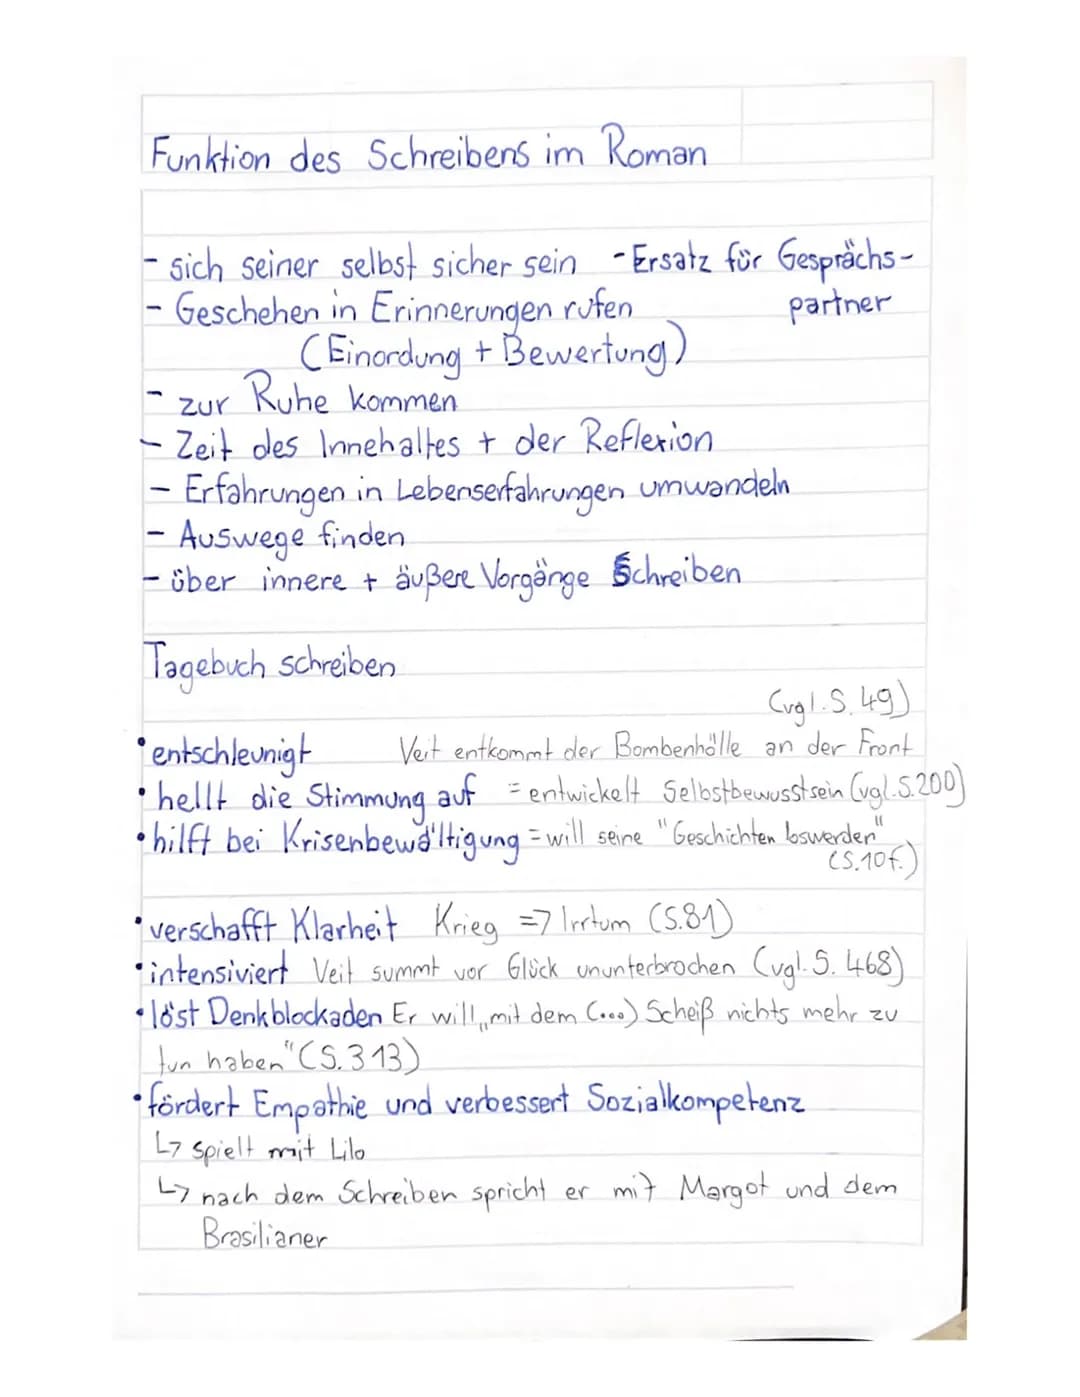 Funktion des Schreibens im Roman
- sich seiner selbst sicher sein - Ersatz für Gesprächs-
- Geschehen in Erinnerungen rufen partner
(Einordung + Bewertung)
- zur Ruhe kommen
- Zeit des Innehaltes + der Reflexion
- Erfahrungen in Lebenserfahrungen umwandeln
- Auswege finden
- über innere + äußere Vorgänge Schreiben
Tagebuch schreiben
(vgl. S. 49)
• entschleunigt Veit entkommt der Bombenhölle an der Front
• hellt die Stimmung auf = entwickelt Selbstbewusstsein (vgl. S. 200)
• hilft bei Krisenbewältigung = will seine "Geschichten loswerden"
(S. 10f.)
• verschafft Klarheit Krieg => Irrtum (S. 81)
• intensiviert Veit summt vor Glück ununterbrochen (vgl. S. 468)
• löst Denkblockaden Er will „mit dem (...) Scheiß nichts mehr zu
tun haben" (S. 313)
• fördert Empathie und verbessert Sozialkompetenz
↳ spielt mit Lilo
↳ nach dem Schreiben spricht er mit Margot und dem
Brasilianer